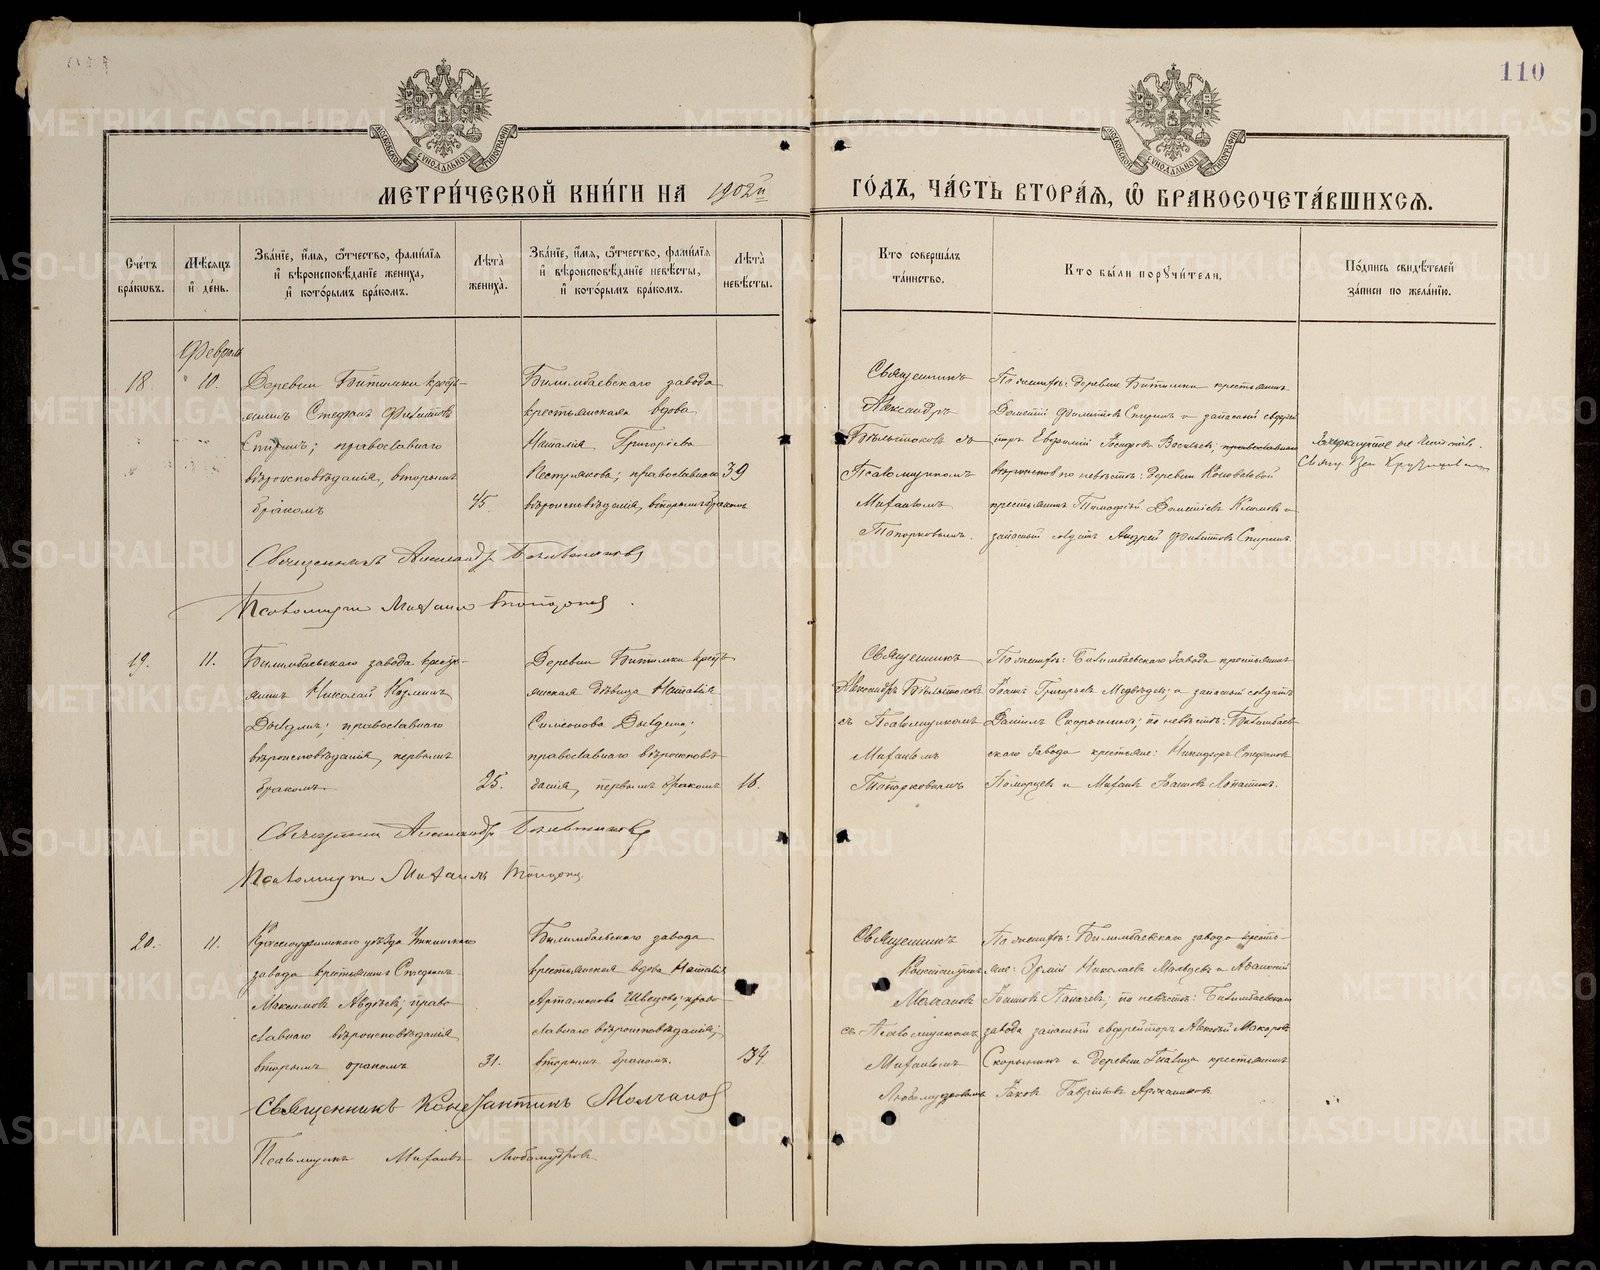 110
МОСКОВСКОЙ СѴНОДАЛЬНОЙ ТИПОГРАФІИ
МОСКОВСКОЙ СѴНОДАЛЬНОЙ ТИПОГРАФІИ
МЕТРИ́ЧЕСКОЙ КНИ́ГИ НА 1902й ГО́ДЪ, ЧА́СТЬ ВТОРА́Ѧ, Ѽ БРАКОСОЧЕТА́ВШИХСѦ.
Сче́тъ бра́кѡвъ.
Мѣ́сѧцъ и҆ де́нь.
Зва́нїе, и҆́мѧ, ѻ҆́тчество, фами́лїѧ и҆ вѣроисповѣ́данїе жениха̀, и҆ кото́рымъ бра́комъ.
Лѣ́та жениха̀.
Зва́нїе, и҆́мѧ, ѻ҆́тчество, фами́лїѧ и҆ вѣроисповѣ́данїе невѣ́сты, и҆ кото́рымъ бра́комъ.
Лѣ́та невѣ́сты.
Кто соверша́лъ та́инство.
Кто бы́ли порꙋчи́тели.
По́дпись свидѣ́телей за́писи по жела́нїю.
Февраль
18
10.
Деревни Битимки кресть-
янинъ Стефанъ Филиппов
Спиринъ; православнаго
вѣроисповѣданія, вторымъ
бракомъ
45.
Билимбаевскаго завода
крестьянская вдова
Наталія Григорьева
Пестрякова; православнаго
вѣроисповѣданія, вторымъ бракомъ
39
Священникъ
Александръ
съ
Псаломщикомъ
Михаиломъ
Топорковымъ.
По женихѣ: деревни Битимки крестьянинъ
Дометій Филиппов Спиринъ и запасный ефрей-
торъ Евфимій православнаго
по невѣстѣ: деревни Коноваловой
крестьянинъ Тимофей Дометіев Климов и
запасный солдатъ Андрей Филиппов Спиринъ.
Зачеркнутое не читать.
Свящ.
Священникъ Александр
Псаломщикъ Михаил Топорков.
19.
11.
Билимбаевскаго завода кресть-
янинъ Николай Кузминъ
Дылдинъ; православнаго
вѣроисповѣданія, первымъ
бракомъ
25.
Деревни Битимки кресть
янская дѣвица Наталія
Симеонова Дылдина;
православнаго вѣроисповѣ
данія, первымъ бракомъ
16.
Священникъ
Александръ
съ Псаломщикомъ
Михаиломъ
Топорковымъ
По женихѣ: Билимбаевскаго завода крестьянинъ
Іоаннъ Григорьев Медвѣдев; и запасный солдатъ
Даниилъ Скорынинъ; по невѣстѣ: Билимбаев-
скаго завода крестьяне: Никифоръ Стефанов
Поморцев и Михаил Іоаннов Лопатинъ.
Священникъ Александр
Псаломщикъ Михаилъ Топорков
20.
11.
Красноуфимскаго уѣзда Уткинскаго
завода крестьянинъ Стефанъ
Максимов Авдѣев; право-
славнаго вѣроисповѣданія
вторымъ бракомъ
31.
Билимбаевскаго завода
крестьянская вдова Наталія
Артамонова Швецова; право-
славнаго вѣроисповѣданія;
вторымъ бракомъ.
34
Священникъ
Константинъ
Молчанов
съ Псаломщикомъ
Михаиломъ
Любомудровымъ
По женихѣ: Билимбаевскаго завода кресть-
яне: Николаев Мальцев и Аѳанасій
Іоаннов Паначев; по невѣстѣ: Билимбаевскаго
завода запасный ефрейторъ Алексѣй Макаров
Скорынинъ и деревни крестьянинъ
Іаков Гавріилов
Священникъ Константинъ Молчанов
Псаломщикъ Михаилъ Любомудров
METRIKI.GASO-URAL.RU